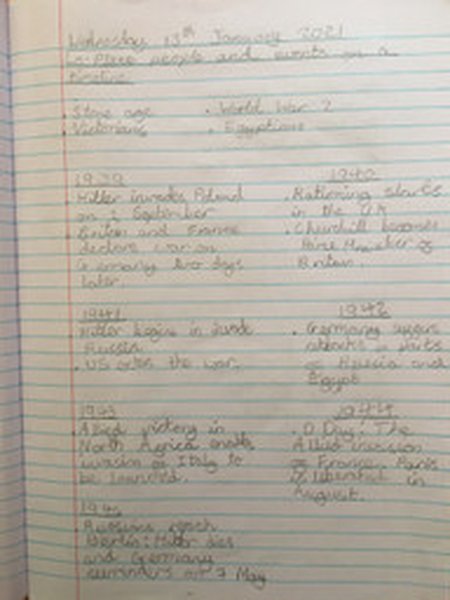 Wednesday 13th January 2021
L.O Place people and events on a
timeline
• Stone age
• Victorians
• World War 2
• Egyptians
1939
• Hitler invades Poland
on 1 September
Briton and France
declare war on
Germany two days
later.
1940
• Rationing starts
in the UK
• Churchill becomes
Prime Minister of
Britain.
1941
Hitler begins
Russia.
• US enter the war.
1942
• Germany
attacks
Russia and
Egypt
1943
• Allied victory in
North Africa
invasion of Italy to
be launched.
1944
• D Day: The
Allied invasion
of France. Paris
is liberated in
August.
1945
• Russians reach
Berlin: Hitler dies
and Germany
surrenders on 7 May